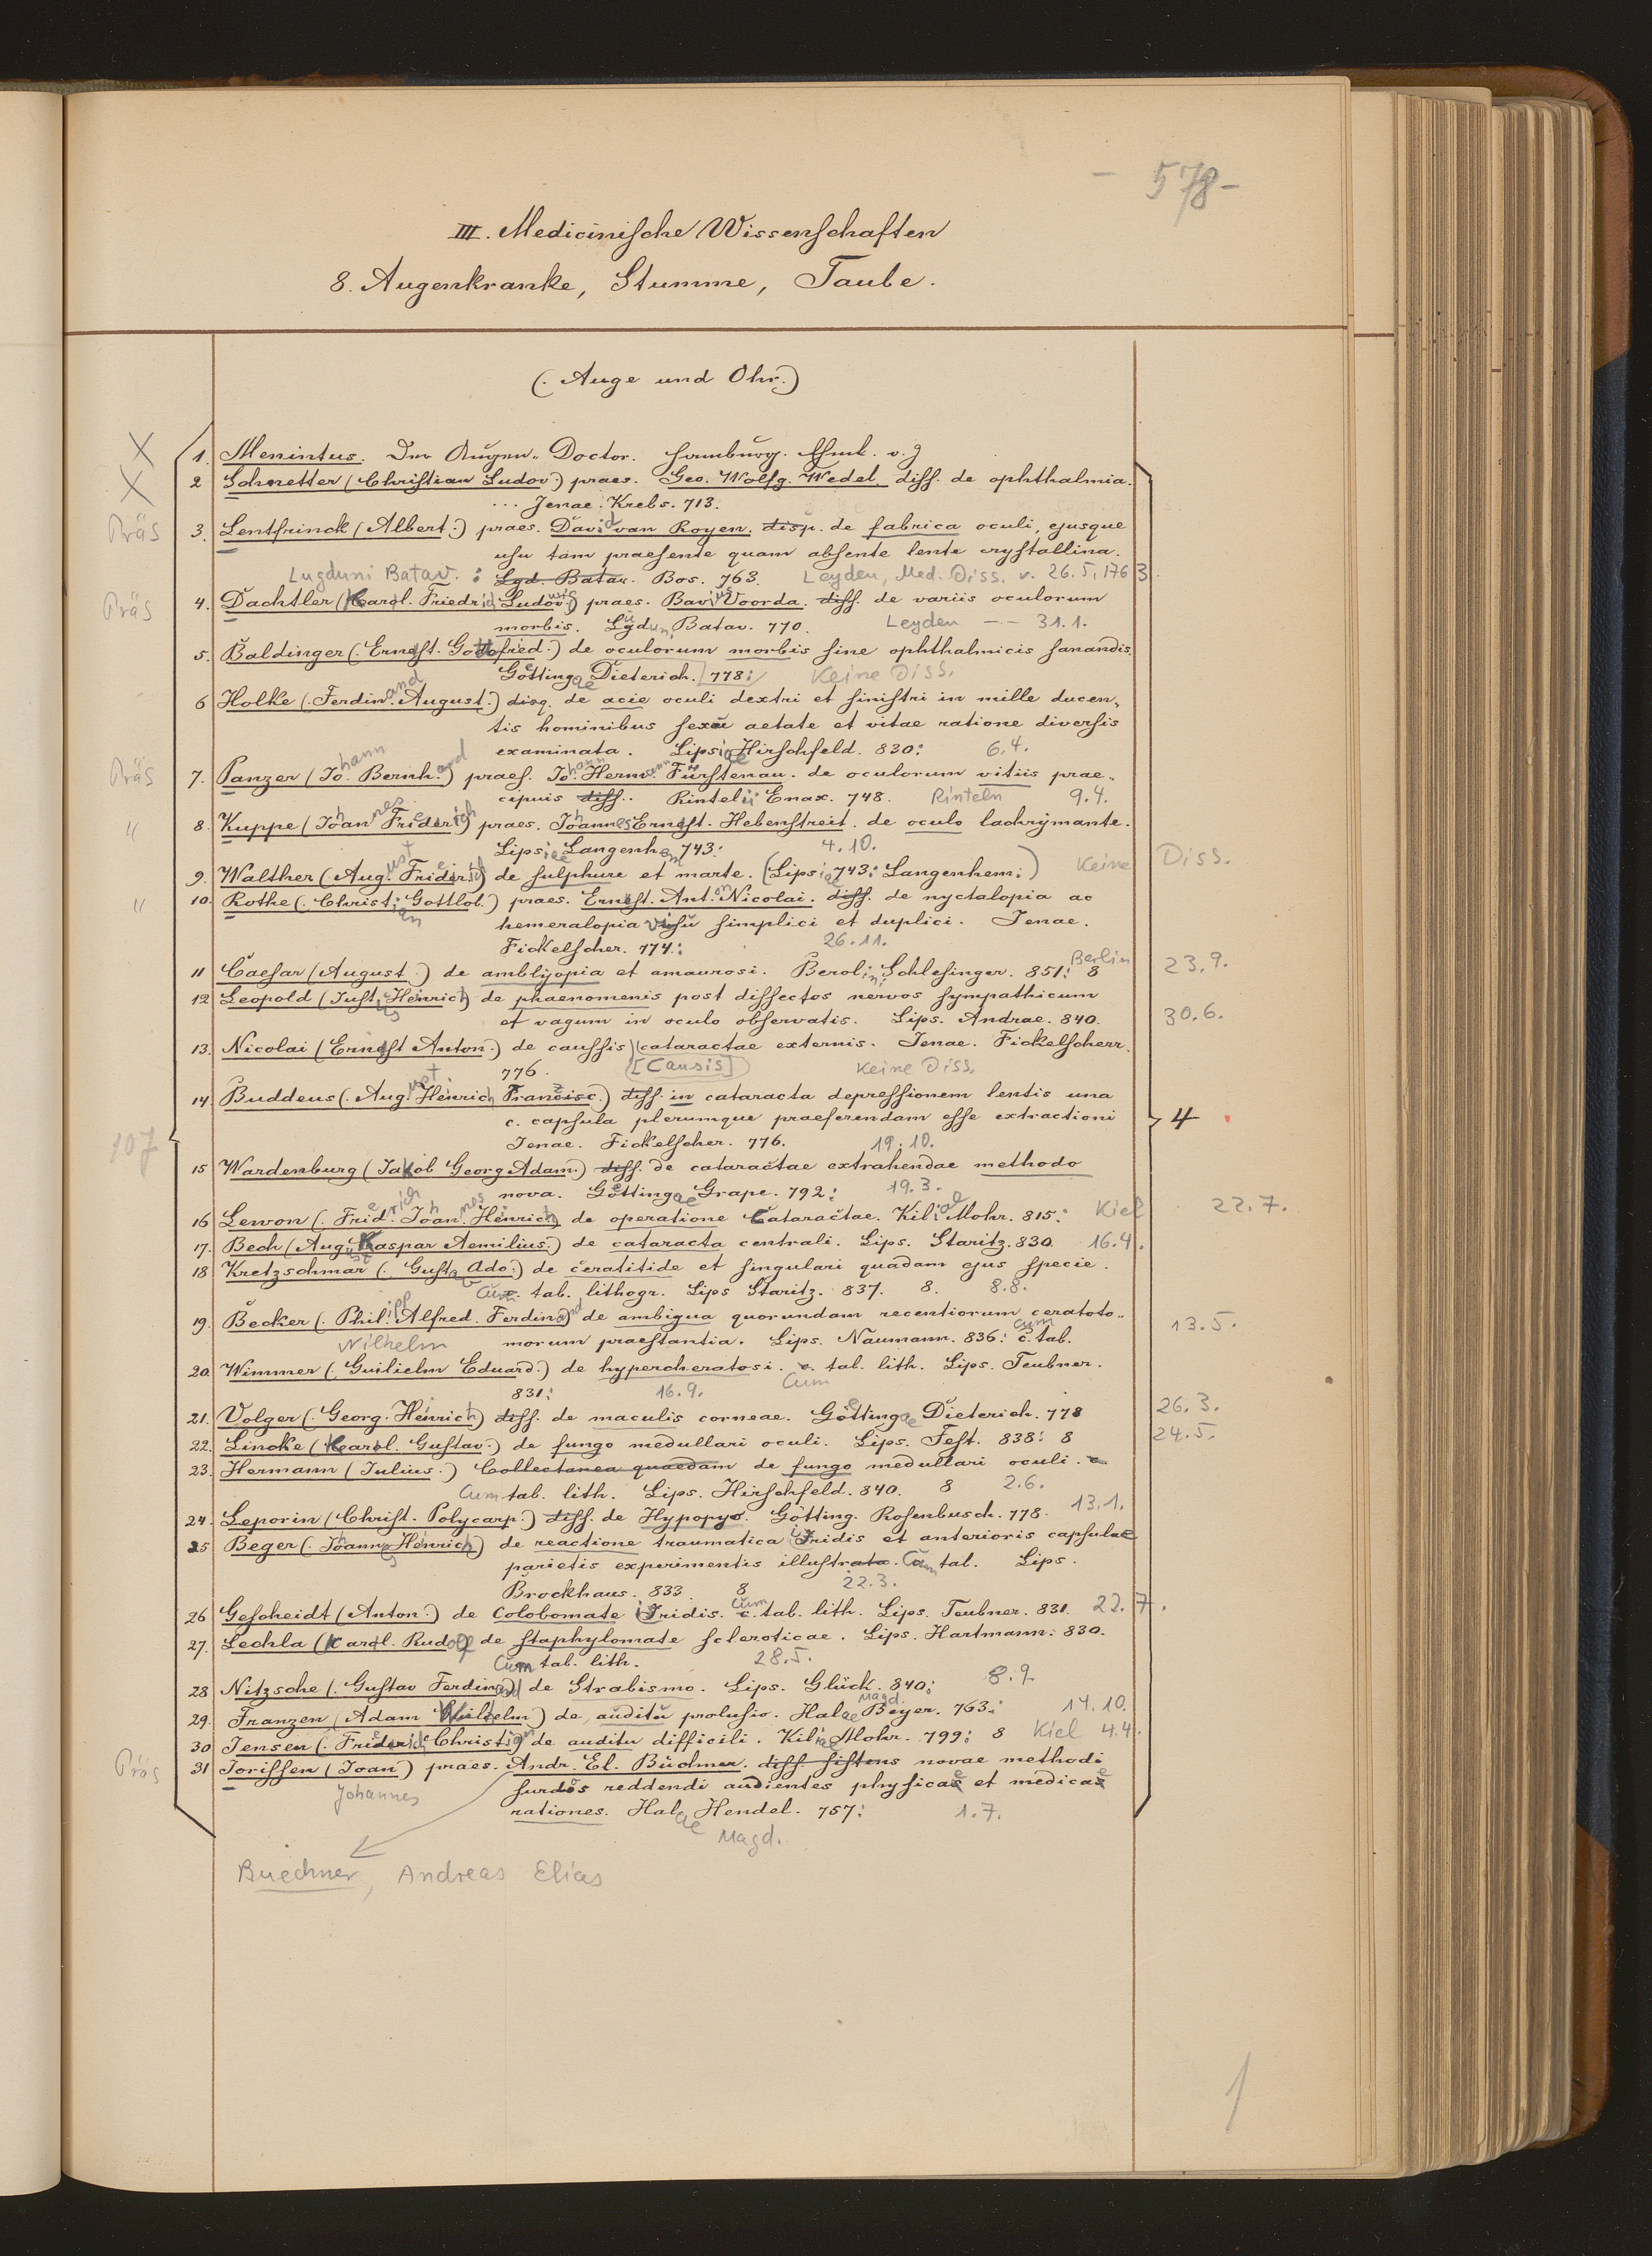 - 578 -
III. Medicinische Wissenschaften
8. Augenkranke, Stumme, Taube.
(. Auge und Ohr.)
X 1. Menintus. Der Augen-Doctor. Hamburg.
X 2 Schnetter (Christian Ludov.) praes. Geo. Wolfg. Wedel. diss. de ophthalmia.
... Jenae. Krebs. 713.
Präs 3. Lentfrinck (Albert.) praes. David van Royen. disp. de fabrica oculi, ejusque
usu tam praesente quam absente lente crystallina.
Lugduni Batav. : Lgd. Batav. Bos. 763. Leyden, Med. Diss. v. 26.5.1763
Präs 4. Dachtler (Karl. Friedrich Ludowig) praes. Bavius Voorda. diss. de variis oculorum
morbis. Lugdun. Batav. 770. Leyden -- 31.1.
5. Baldinger (. Ernst. Gottfried.) de oculorum morbis sine ophthalmicis sanandis.
Goettingae Dieterich. 778: Keine Diss.
6 Holke (. Ferdinand August.) disq. de acie oculi dextri et sinistri in mille ducen-
tis hominibus sexu aetate et vitae ratione diversis
examinata. Lipsiae Hirschfeld. 830: 6.4.
Präs 7. Panzer (Johann Bernhard) praes. Johann Hermann Fürstenau. de oculorum vitiis prae-
cipuis diss. Rintelii Enax. 748. Rinteln 9.4.
" 8. Kuppe (Johannes Friederich) praes. Johannes Ernst. Hebenstreit. de oculo lachrymante.
Lipsiae Langenhem 743: 4.10.
9. Walther (August Friederich) de sulphure et marte. (Lipsiae 743: Langenhem:) Keine Diss.
" 10. Rothe (. Christian Gottlob.) praes. Ernst. Anton Nicolai. diss. de nyctalopia ac
hemeralopia visu simplici et duplici. Jenae.
Fickelscher. 774: 26.11.
11 Caesar (August.) de amblyopia et amaurosi. Berolini Schlesinger. 851: 8 Berlin 23.9.
12 Leopold (Justus Heinrich) de phaenomenis post dissectos nervos sympathicum
et vagum in oculo observatis. Lips. Andrae. 840. 30.6.
13. Nicolai (Ernst Anton.) de caussis cataractae externis. Jenae. Fickelscherr.
776. [Causis] Keine Diss.
14. Buddeus (. August Heinrich Francisc.) diss. in cataracta depressionem lentis una
c. capsula plerumque praeferendam esse extractioni
Jenae. Fickelscher. 776. 19.10.
107
4
15 Wardenburg (Jakob Georg Adam.) diss. de cataractae extrahendae methodo
nova. Goettingae Grape. 792: 19.3.
16 Lewon (. Friederich Johannes Heinrich) de operatione Cataractae. Kiliae Mohr. 815: Kiel 22.7.
17. Bech (August Kaspar Aemilius.) de cataracta centrali. Lips. Staritz. 830. 16.4.
18 Kretzschmar (. Gustav Ado.) de ceratitide et singulari quadam ejus specie.
Cum tab. lithogr. Lips Staritz. 837. 8. 8.8.
19. Becker (. Philipp Alfred. Ferdinand) de ambigua quorundam recentiorum ceratoto-
Wilhelm morum praestantia. Lips. Naumann. 836: cum c. tab. 13.5.
20. Wimmer (. Guilielm Eduard.) de hypercheratosi. c. tab. lith. Lips. Teubner.
831: 16.9. Cum
21. Volger (. Georg. Heinrich) diss. de maculis corneae. Goettingae Dieterich. 778 26.3.
22. Lincke (Karl. Gustav.) de fungo medullari oculi. Lips. Fest. 838: 8 24.5.
23. Hermann (Julius.) Collectanea quaedam de fungo medullari oculi. c
Cum tab. lith. Lips. Hirschfeld. 840. 8 2.6.
24. Leporin (Christ. Polycarp.) diss. de Hypopyo. Götting. Rosenbusch. 778. 13.1.
25 Beger (. Johannes Heinrich) de reactione traumatica iridis et anterioris capsulae
parietis experimentis illustrata. Cum tab. Lips.
Brockhaus. 833 8 22.3.
26 Gescheidt (Anton.) de Colobomate iridis. cum c. tab. lith. Lips. Teubner. 831. 22.7.
27. Lechla (Karl. Rudolf de staphylomate scleroticae. Lips. Hartmann: 830.
Cum tab. lith. 28.5.
28 Nitzsche (. Gustav Ferdinand) de Strabismo. Lips. Glück. 840: 8.9.
29. Franzen (Adam Wilhelm) de auditu prolusio. Halae Magd. Beyer. 763: 14.10.
30 Jensen (. Friederich Christian de auditu difficili. Kiliae Mohr. 799: 8 Kiel 4.4.
Präs 31 Jorissen (Joan) praes. Andr. El. Büchner. diss. sistens novae methodi
Johannes surdos reddendi audientes physicae et medicae
rationes. Halae Hendel. 757: 1.7.
Magd.
Buechner, Andreas Elias
1